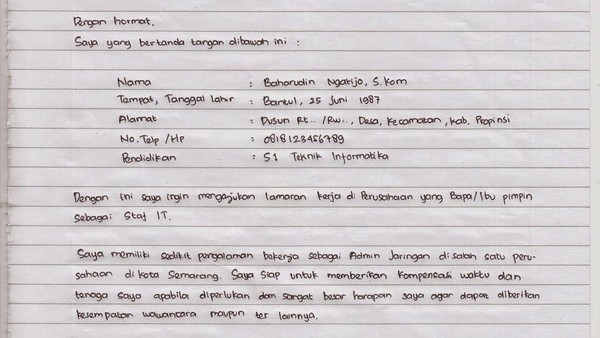 Dengan hormat.
Saya yang bertanda tangan dibawah ini :
Nama : Baharudin Ngatijo, S.Kom
Tempat, Tanggal lahir : Bantul, 25 Juni 1987
Alamat : Dusun Rt.. /Rw.., Desa, Kecamatan, kab. Propinsi
No. Telp /Hp : 0818123456789
Pendidikan : S1 Teknik Informatika
Dengan ini saya ingin mengajukan lamaran kerja di Perusahaan yang Bapa/Ibu pimpin
sebagai Staf IT.
Saya memiliki sedikit pengalaman bekerja sebagai Admin Jaringan di salah satu peru-
sahaan di kota Semarang. Saya Siap untuk memberikan kompensasi waktu dan
tenaga saya apabila diperlukan dan sangat besar harapan saya agar dapat diberikan
kesempatan wawancara maupun tes lainnya.